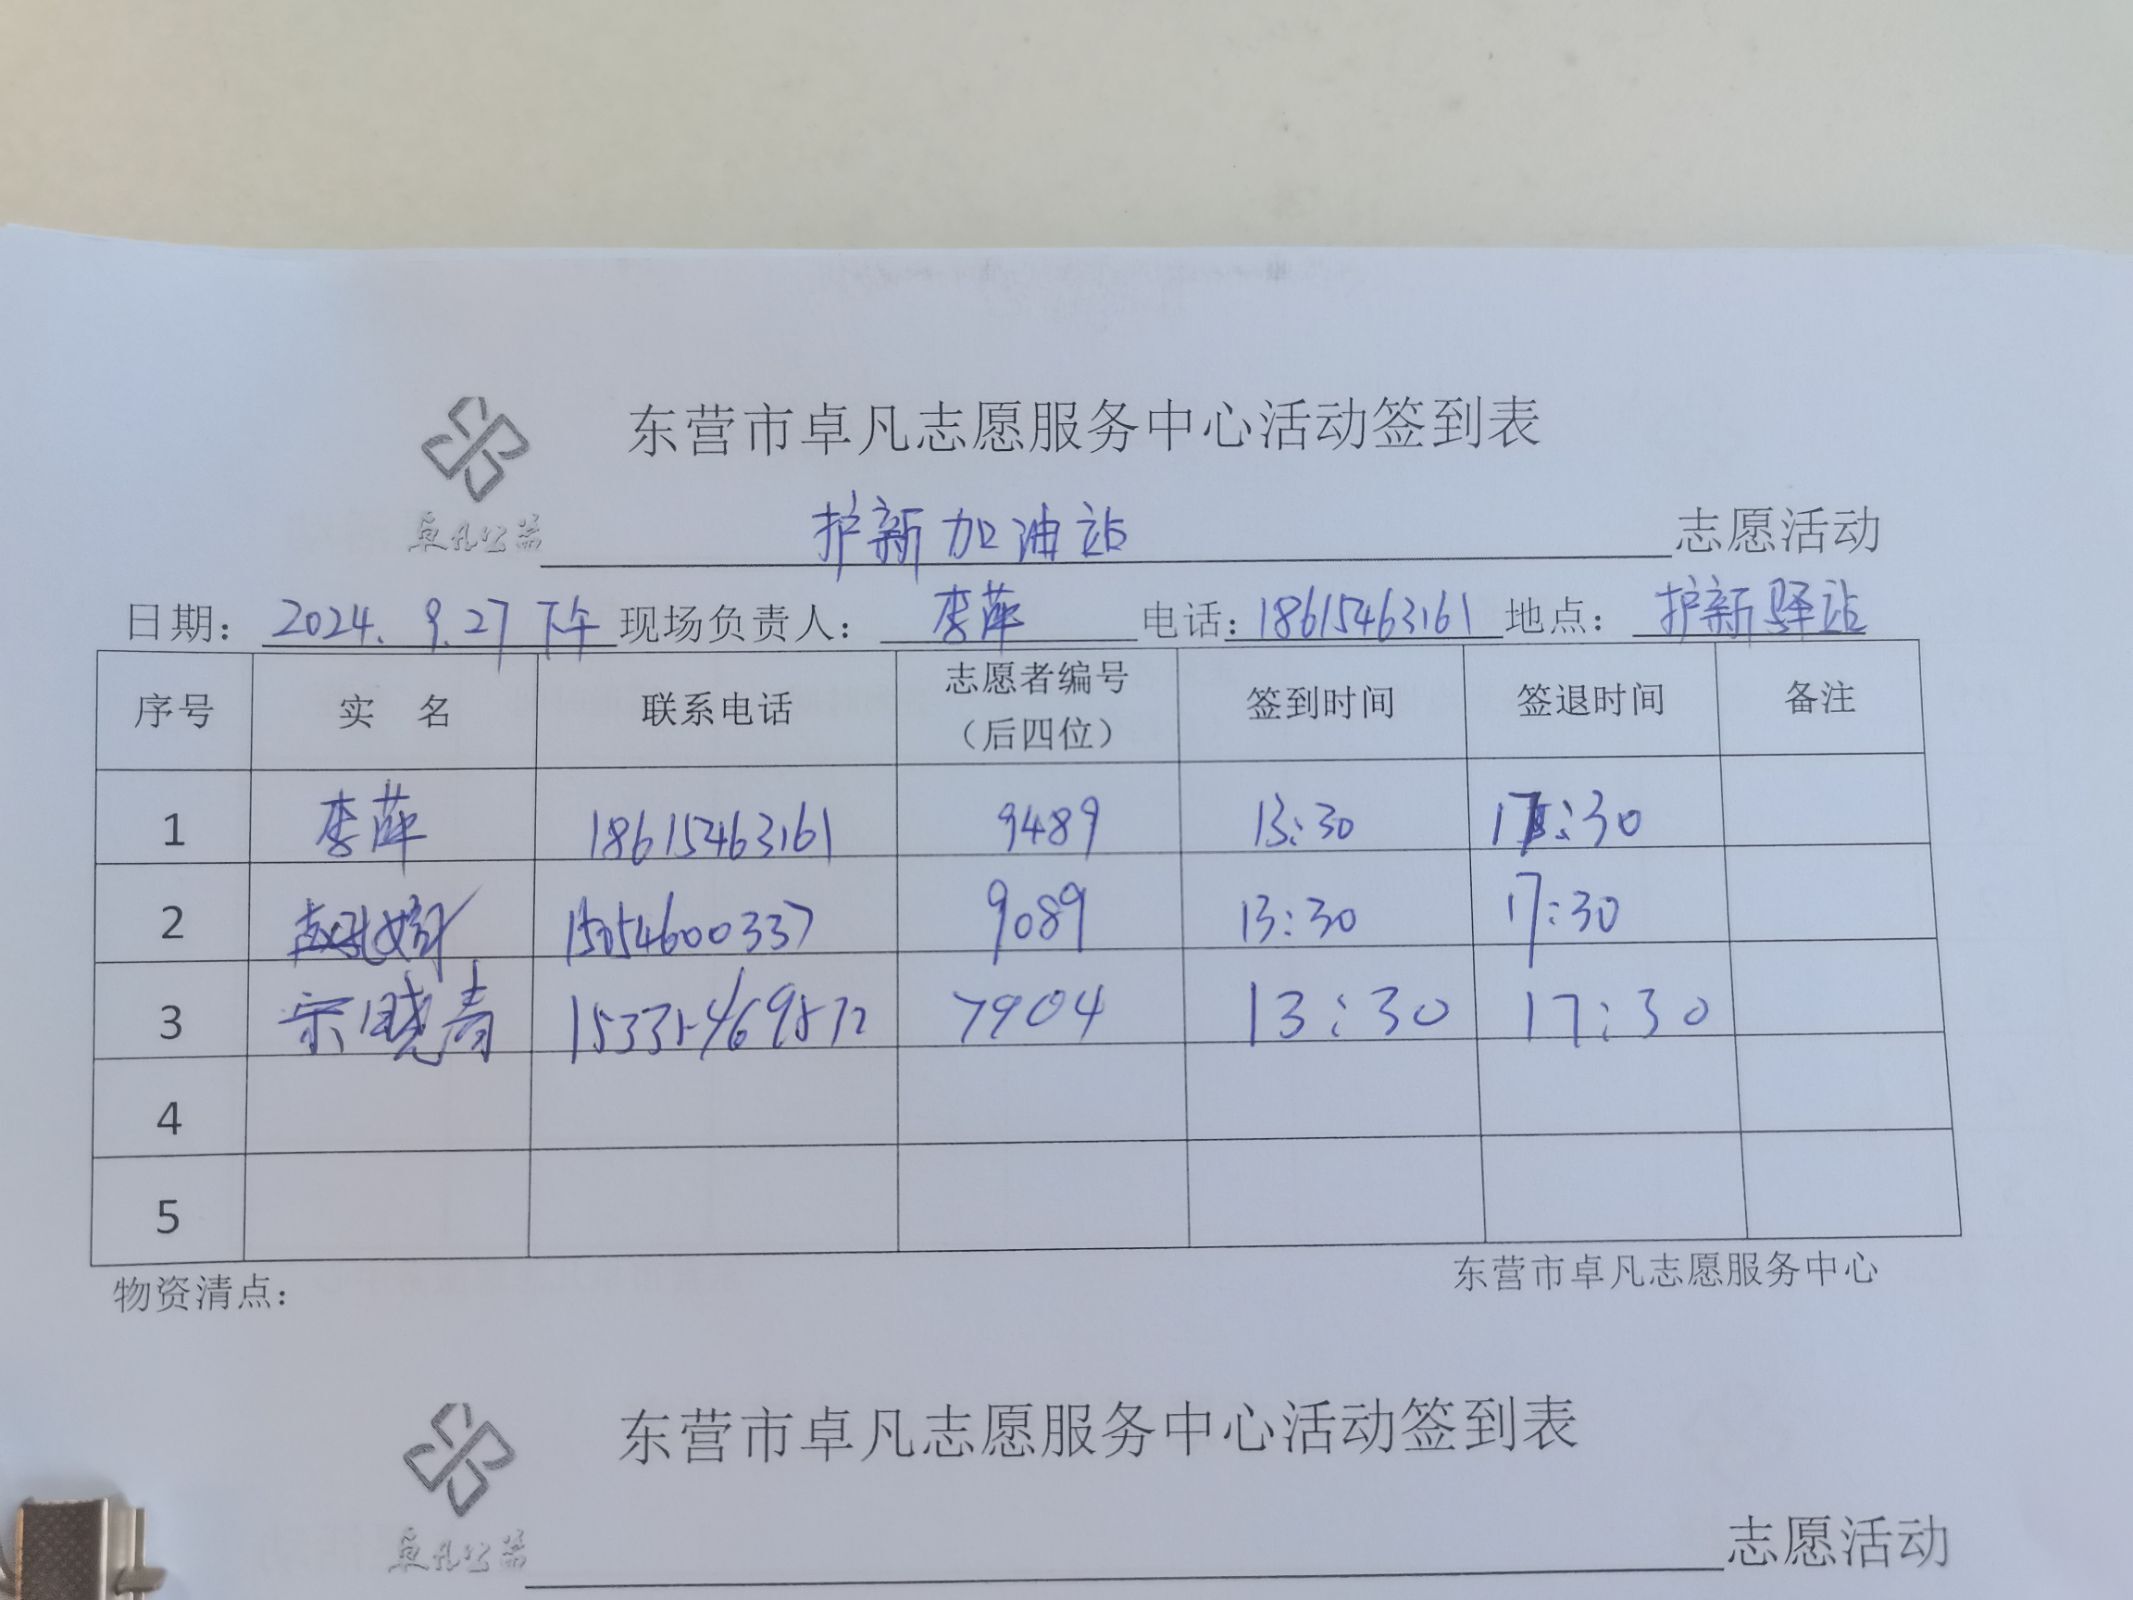 东营市卓凡志愿服务中心活动签到表
卓凡公益 护新加油站 志愿活动
日期: 2024.9.27下午 现场负责人: 李萍 电话: 18615463161 地点: 护新驿站
序号 实 名 联系电话 志愿者编号(后四位) 签到时间 签退时间 备注
1 李萍 18615463161 9489 13:30 17:30
2 15054600337 9089 13:30 17:30
3 宗晓青 7904 13:30 17:30
4
5
物资清点: 东营市卓凡志愿服务中心
东营市卓凡志愿服务中心活动签到表
卓凡公益 志愿活动